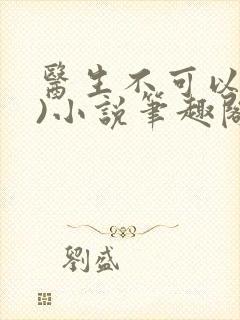 醫生不可以
)小說筆趣閣
劉盛